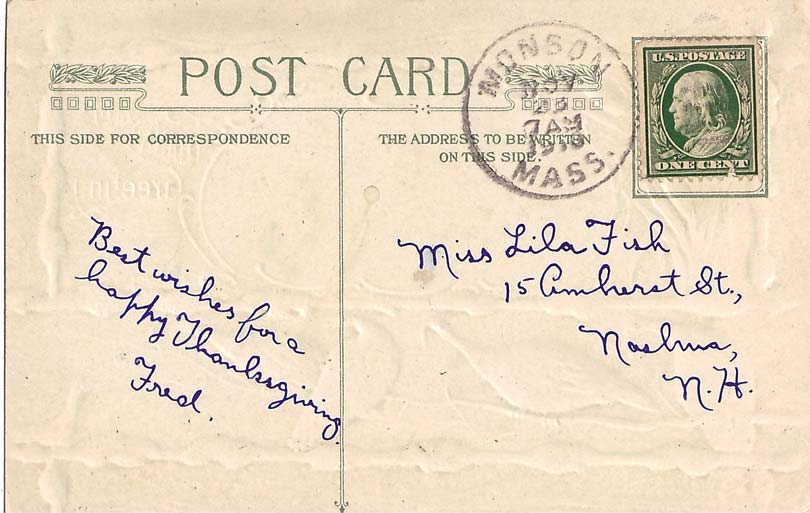 POST CARD
MONSON
NOV
23
7 AM
1910
MASS.
U.S. POSTAGE
ONE CENT
THIS SIDE FOR CORRESPONDENCE
THE ADDRESS TO BE WRITTEN
ON THIS SIDE.
Best wishes for a
happy Thanksgiving.
Fred.
Miss Lila Fish
15 Amherst St.,
Nashua,
N.H.